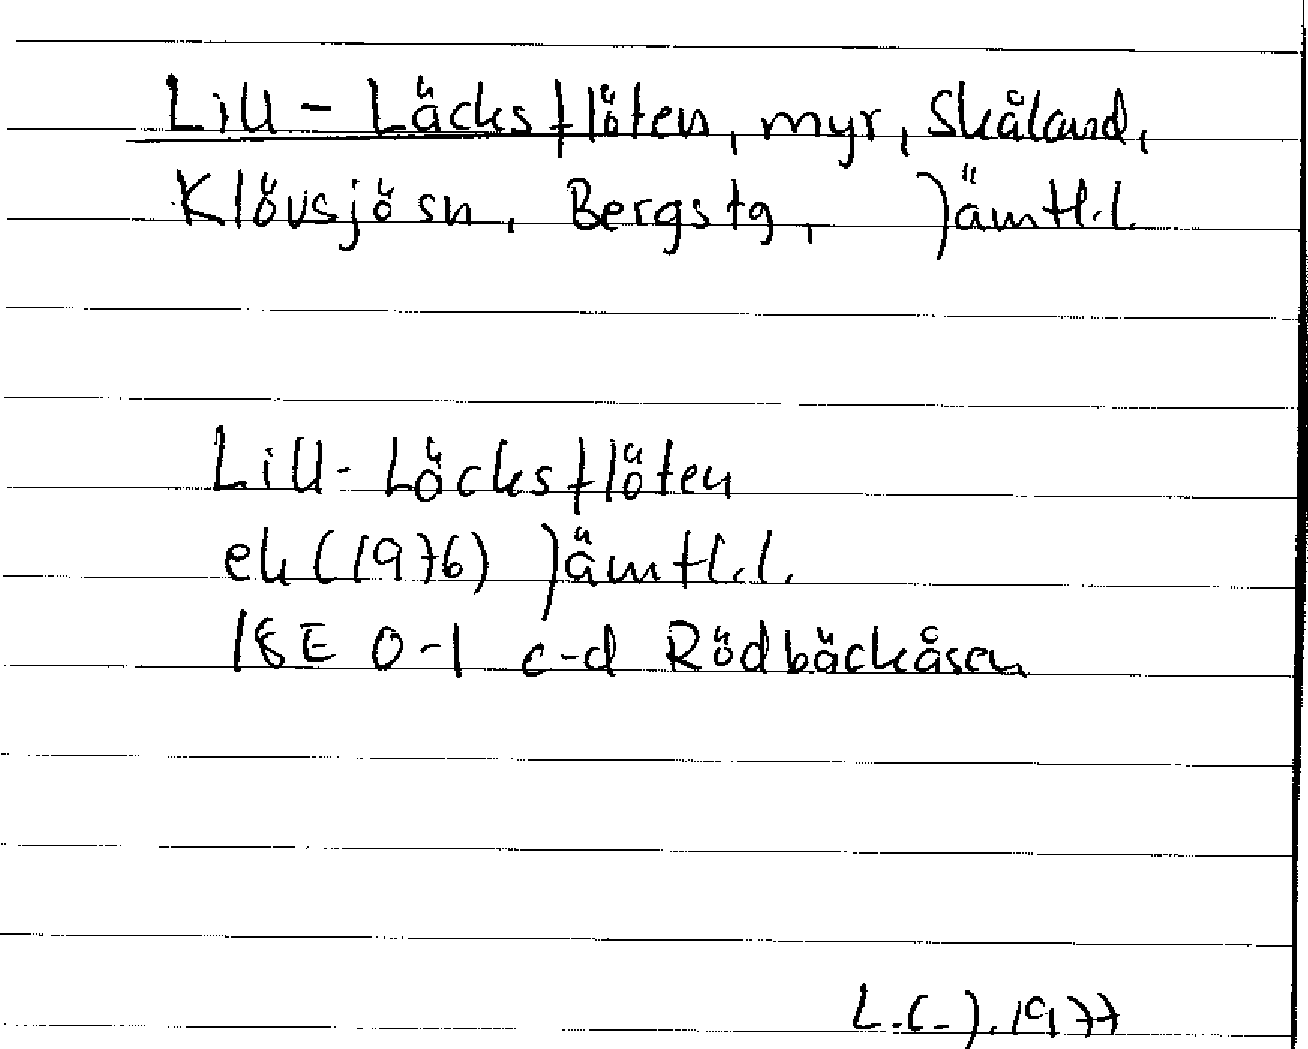 Lill-Läcksflöten, myr, Skåland,
Klövsjösn, Bergstg, Jämtl.l.
Lill-Löcksflöten
ek (1976) Jämtl.l.
18E 0-1 c-d Rödbäckåsen
L.C-J. 1977